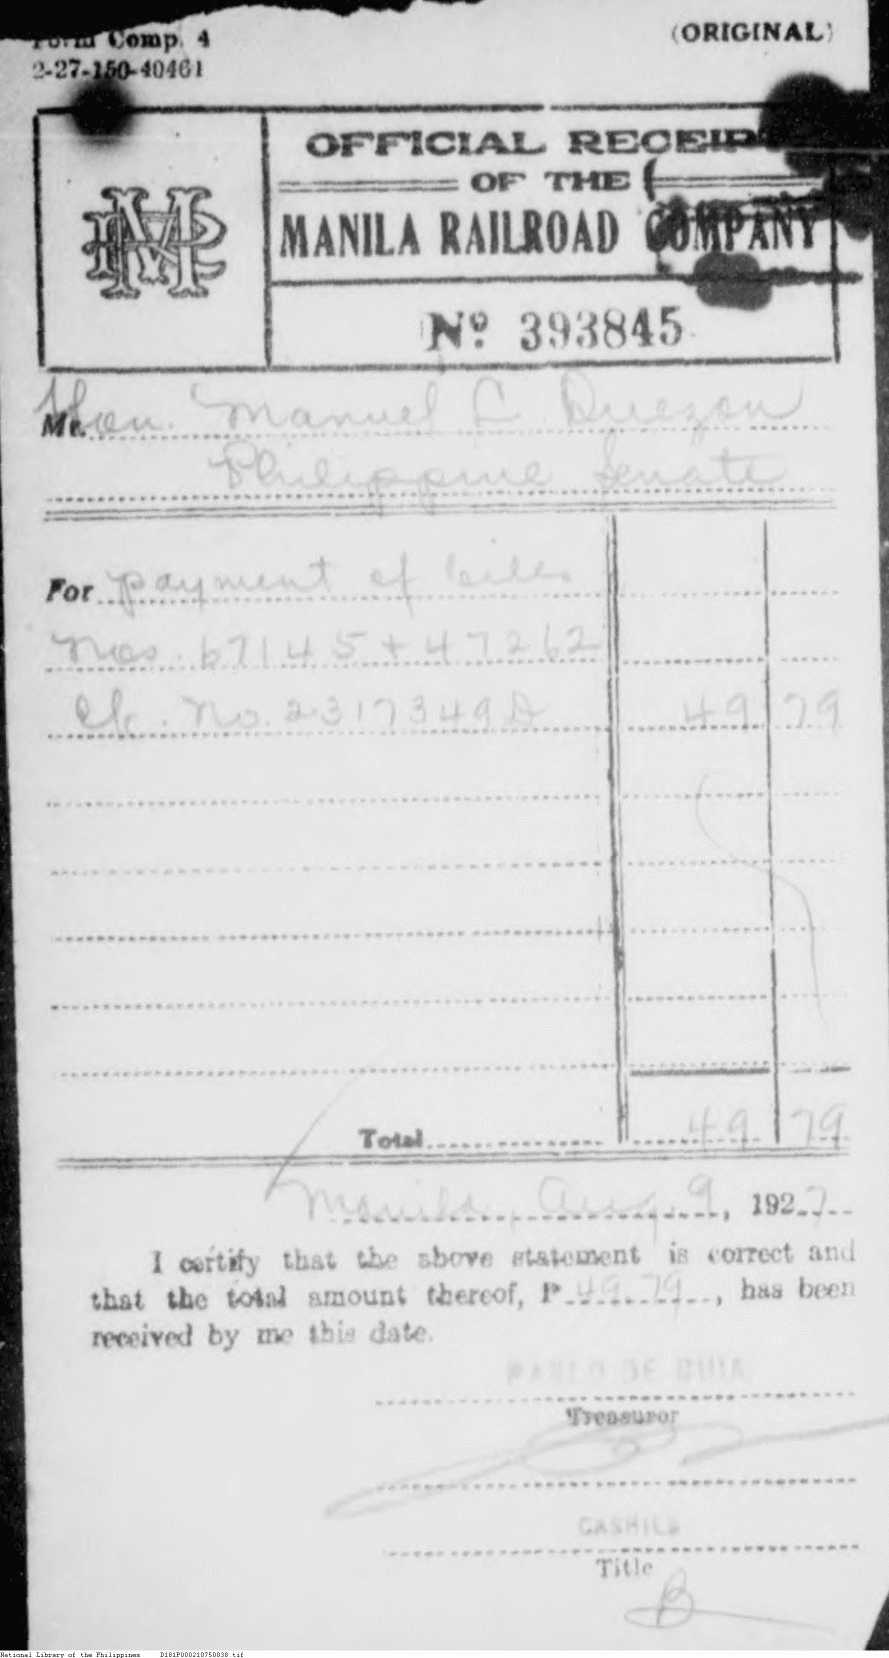 Form Comp. 4
2-27-150-40461
(ORIGINAL)
MRR
OFFICIAL RECEIP
OF THE
MANILA RAILROAD COMPANY
Nº 393845
Mr. Hon. Manuel L Quezon
Philippine Senate
For payment of bills
Nos. 67145 + 47262
Ck. No. 2317349D 49 79
Total 49 79
Manila, Aug. 9, 1927
I certify that the above statement is correct and
that the total amount thereof, P 49.79, has been
received by me this date.
PABLO DE GUIA
Treasurer
CASHIER
Title
National Library of the Philippines D181P000210750838.tif